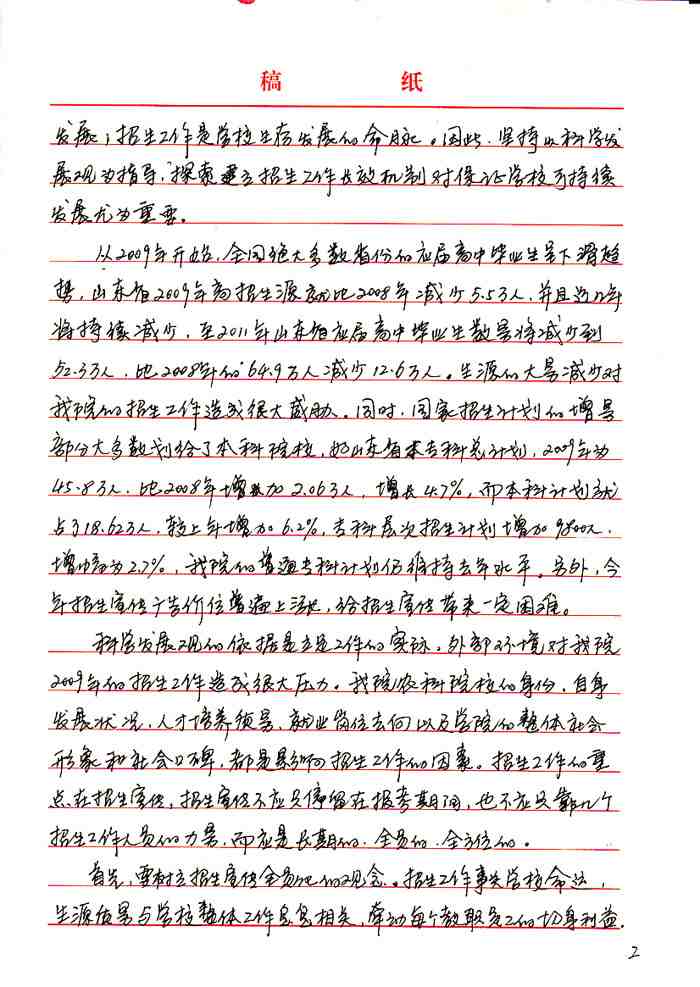 稿 纸
发展，招生工作是学校生存发展的命脉。因此，坚持以科学发
展观为指导，探索建立招生工作长效机制对保证学校可持续
发展尤为重要。
从2009年开始，全国绝大多数省份的应届高中毕业生呈下滑趋
势，山东省2009年高招生源就比2008年减少5.5万人，并且近几年
将持续减少，至2011年山东省应届高中毕业生数量将减少到
52.3万人，比2008年的64.9万人减少12.6万人。生源的大量减少对
我院的招生工作造成很大威胁。同时，国家招生计划的增量
部分大多数划给了本科院校，如山东省本专科总计划，2009年为
45.8万人，比2008年增加2.06万人，增长4.7%，而本科计划就
占了18.623人，较上年增加6.2%，专科层次招生计划增加9800人，
增幅为2.7%，我院的普通专科计划仍维持去年水平。另外，今
年招生宣传广告价位普遍上涨，给招生宣传带来一定困难。
科学发展观的依据是立足工作的实际，外部环境对我院
2009年的招生工作造成很大压力。我院农科院校的身份，自身
发展状况，人才培养质量，就业岗位去向以及学院的整体社会
形象和社会口碑，都是影响招生工作的因素。招生工作的重
点在招生宣传，招生宣传不应只停留在报考期间，也不应只靠几个
招生工作人员的力量，而应是长期的、全员的、全方位的。
首先，要树立招生宣传全员化的观念。招生工作事关学校命运，
生源质量与学校整体工作息息相关，牵动每个教职员工的切身利益。
2